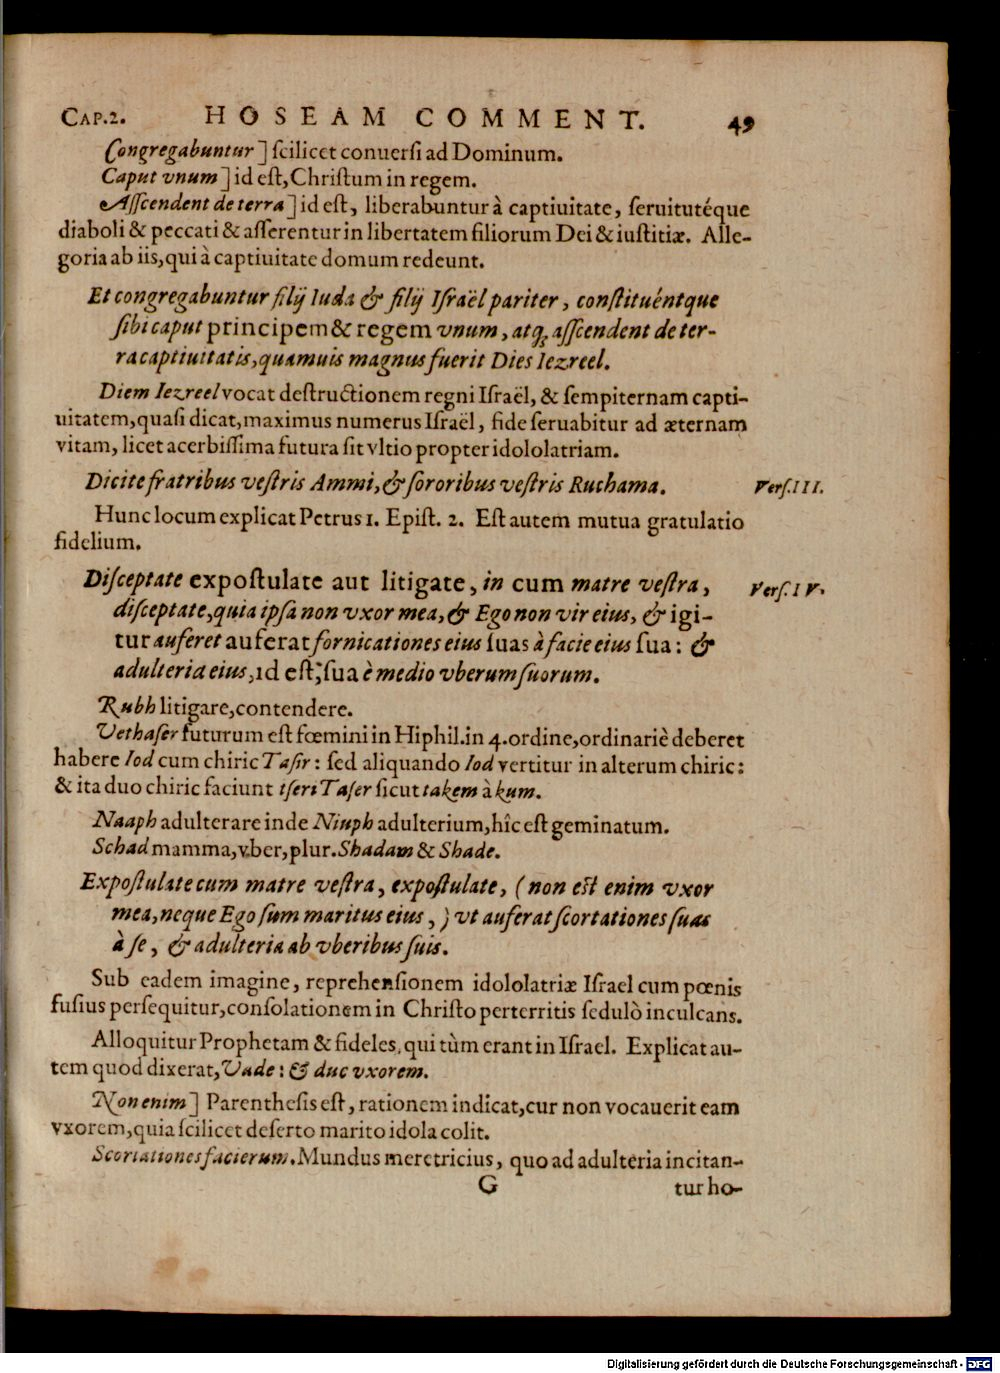 CAP.2. HOSEAM COMMENT. 49
Congregabuntur] ſcilicet conuerſi ad Dominum.
Caput vnum] id eſt, Chriſtum in regem.
Aſſcendent de terra] id eſt, liberabuntur à captiuitate, ſeruitutéque
diaboli & peccati & aſſerentur in libertatem filiorum Dei & iuſtitiæ. Alle-
goria ab iis, qui à captiuitate domum redeunt.
Et congregabuntur filij Iuda & filij Iſraël pariter, conſtituéntque
ſibi caput principem & regem vnum, atq; aſſcendent de ter-
ra captiuitatis, quamuis magnus fuerit Dies Iezreel.
Diem Iezreel vocat deſtructionem regni Iſraël, & ſempiternam capti-
uitatem, quaſi dicat, maximus numerus Iſraël, fide ſeruabitur ad æternam
vitam, licet acerbiſſima futura ſit vltio propter idololatriam.
Dicite fratribus veſtris Ammi, & ſororibus veſtris Ruchama. Verſ. III.
Hunc locum explicat Petrus 1. Epiſt. 2. Eſt autem mutua gratulatio
fidelium.
Diſceptate expoſtulate aut litigate, in cum matre veſtra, Verſ. IV.
diſceptate, quia ipſa non vxor mea, & Ego non vir eius, & igi-
tur auferet auferat fornicationes eius ſuas à facie eius ſua: &
adulteria eius, id eſt, ſua è medio vberum ſuorum.
Rubh litigare, contendere.
Vethaſer futurum eſt fœmini in Hiphil. in 4. ordine, ordinariè deberet
habere Iod cum chiric Taſir: ſed aliquando Iod vertitur in alterum chiric:
& ita duo chiric faciunt tſeri Taſer ſicut takem à kum.
Naaph adulterare inde Niuph adulterium, hîc eſt geminatum.
Schad mamma, vber, plur. Shadam & Shade.
Expoſtulate cum matre veſtra, expoſtulate, (non eſt enim vxor
mea, neque Ego ſum maritus eius,) vt auferat ſcortationes ſuas
à ſe, & adulteria ab vberibus ſuis.
Sub eadem imagine, reprehenſionem idololatriæ Iſrael cum pœnis
fuſius perſequitur, conſolationem in Chriſto perterritis ſedulò inculcans.
Alloquitur Prophetam & fideles, qui tùm erant in Iſrael. Explicat au-
tem quod dixerat, Vade: & duc vxorem.
Non enim] Parentheſis eſt, rationem indicat, cur non vocauerit eam
vxorem, quia ſcilicet deſerto marito idola colit.
Scortationes facierum. Mundus meretricius, quo ad adulteria incitan-
G tur ho-
Digitalisierung gefördert durch die Deutsche Forschungsgemeinschaft - DFG